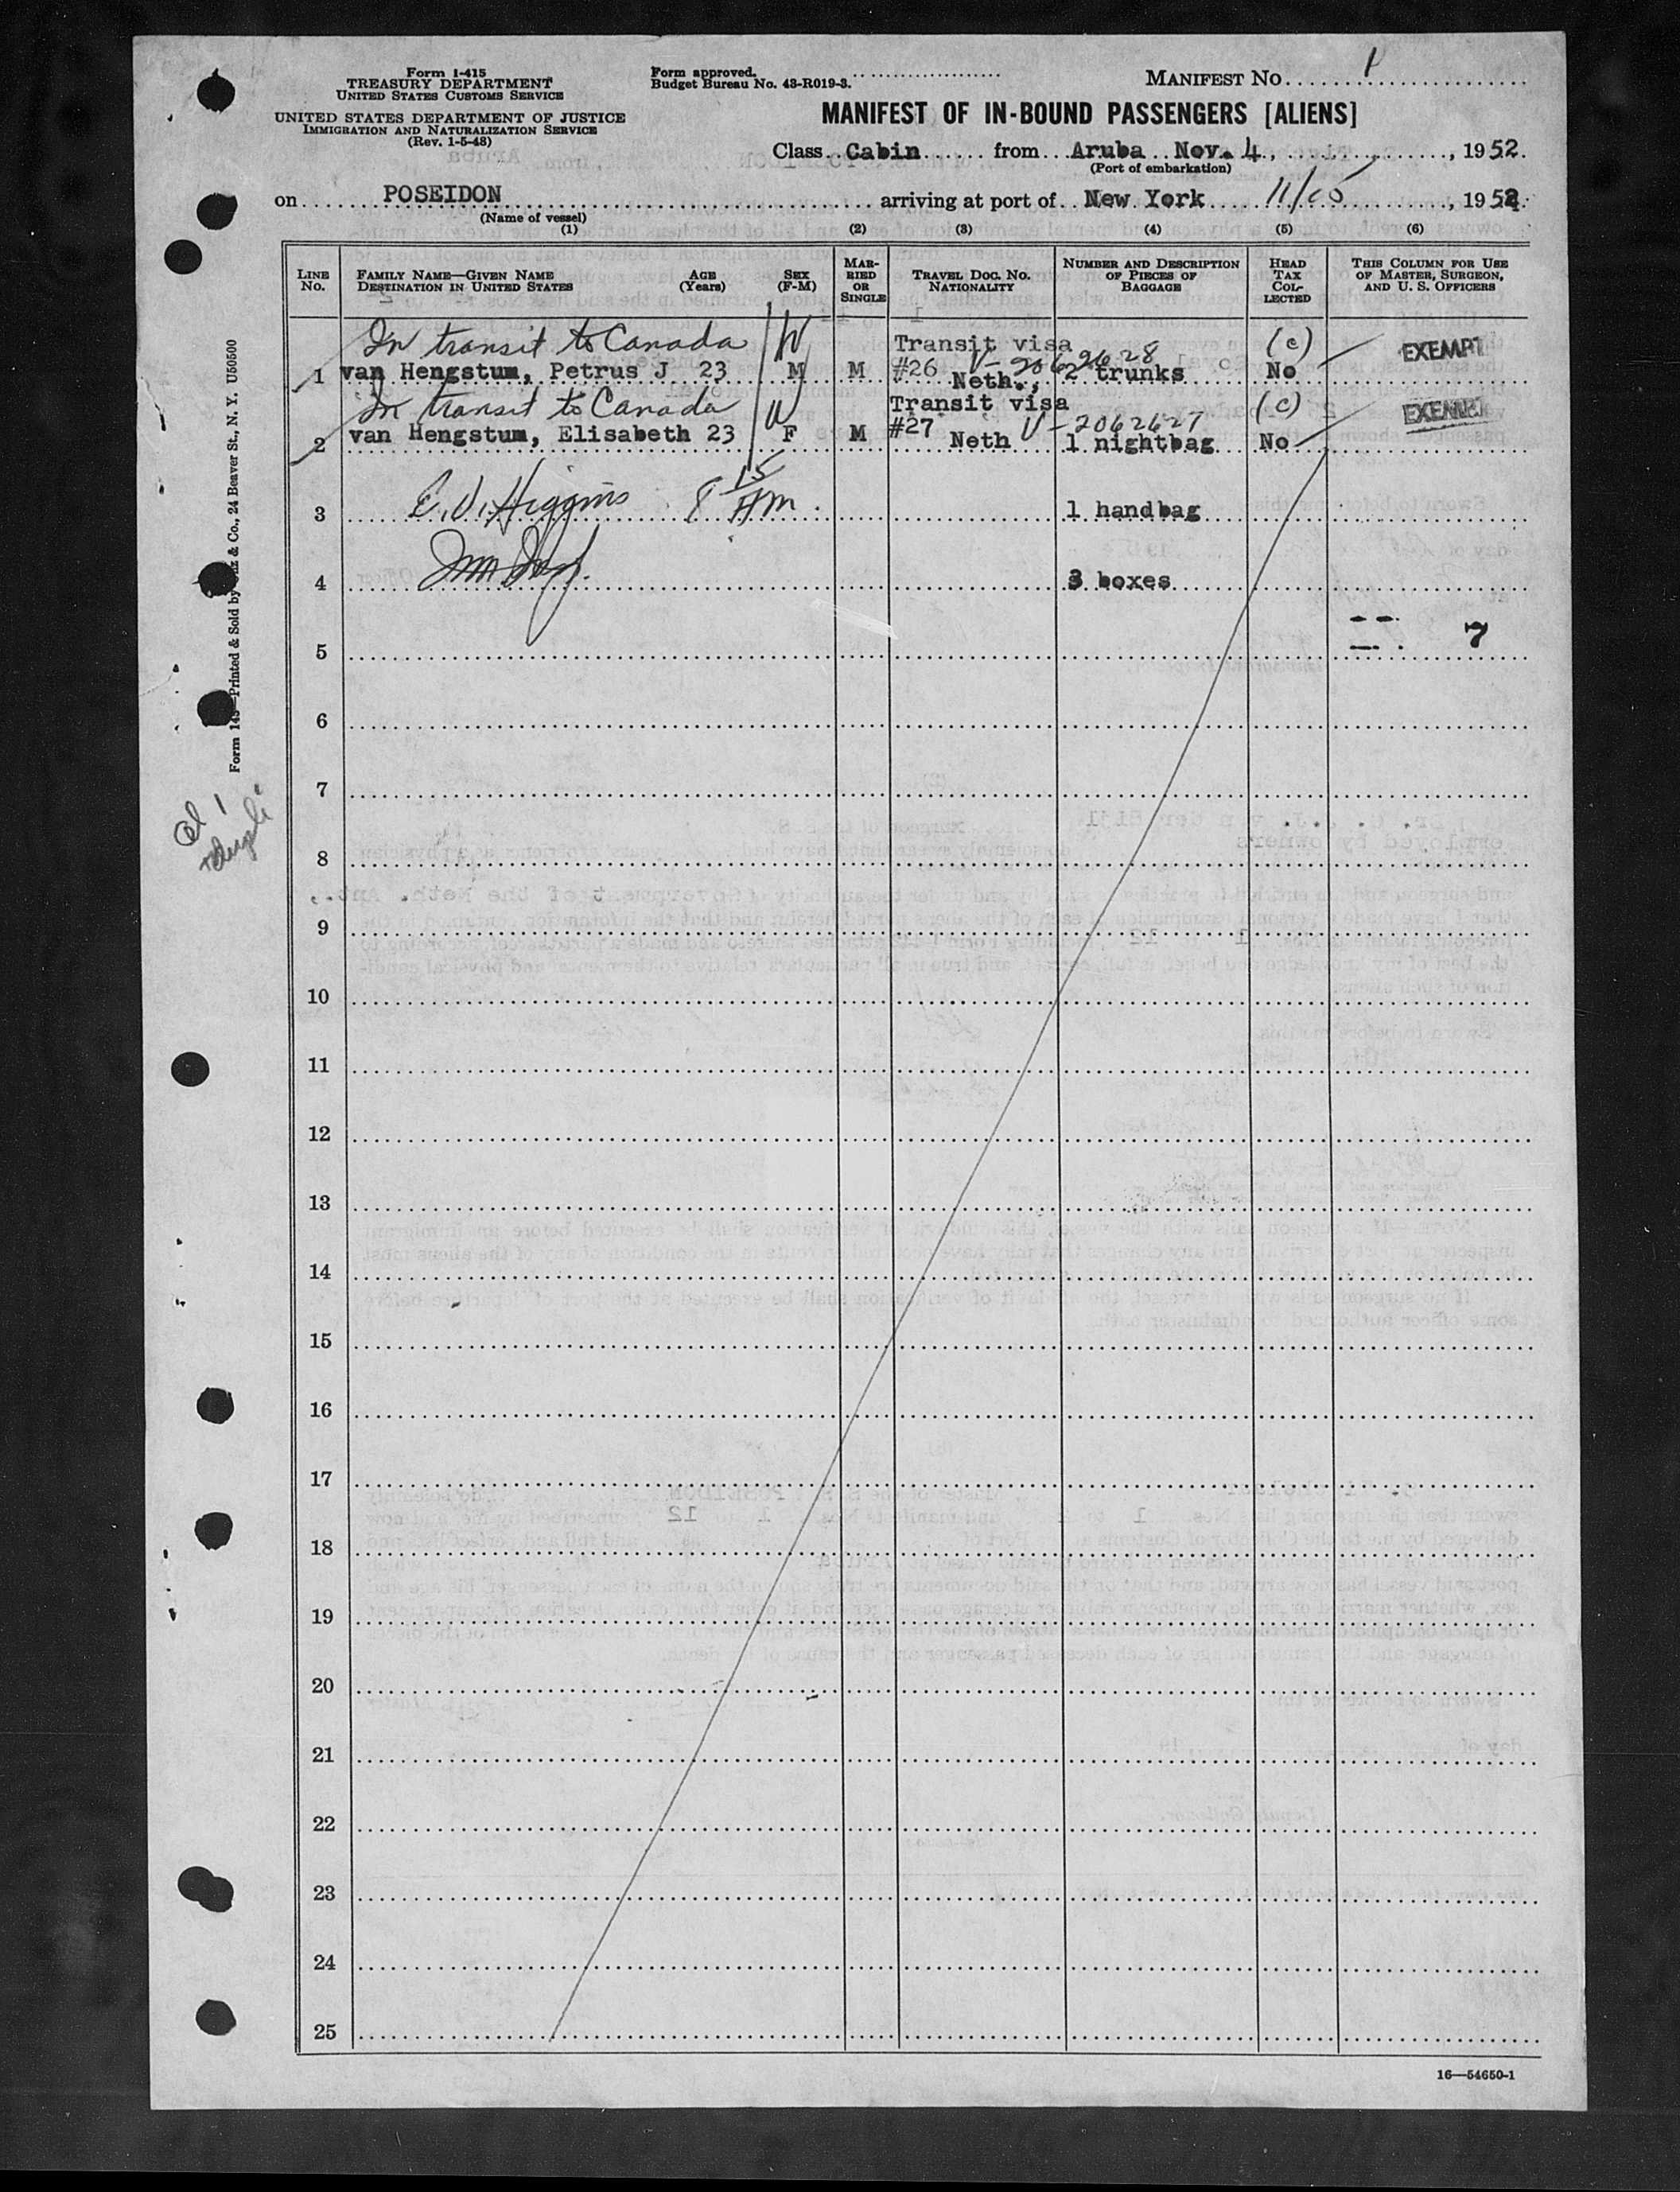 Form I-415
TREASURY DEPARTMENT
UNITED STATES CUSTOMS SERVICE
UNITED STATES DEPARTMENT OF JUSTICE
IMMIGRATION AND NATURALIZATION SERVICE
(Rev. 1-5-48)
Form approved.
Budget Bureau No. 43-R019-3.
MANIFEST NO. 1
MANIFEST OF IN-BOUND PASSENGERS [ALIENS]
Class Cabin from Aruba Nov. 4, , 1952.
(Port of embarkation)
on POSEIDON arriving at port of New York 11/05, 1952.
(Name of vessel)
(1) (2) (3) (4) (5) (6)
LINE NO. FAMILY NAME—GIVEN NAME DESTINATION IN UNITED STATES AGE (Years) SEX (F-M) MARRIED OR SINGLE TRAVEL DOC. NO. NATIONALITY NUMBER AND DESCRIPTION OF PIECES OF BAGGAGE HEAD TAX COLLECTED THIS COLUMN FOR USE OF MASTER, SURGEON, AND U. S. OFFICERS
In transit to Canada W Transit visa (c) EXEMPT
1 van Hengstum, Petrus J 23 M M #26 V-2062628 Neth., 2 trunks No
In transit to Canada W Transit visa (c) EXEMPT
2 van Hengstum, Elisabeth 23 F M #27 Neth V-2062627 1 nightbag No
3 E.V. Higgins 8 15 AM. 1 handbag
4 3 boxes
5 7
6
7
8
9
10
11
12
13
14
15
16
17
18
19
20
21
22
23
24
25
16—54650-1
& Co., 24 Beaver St., N. Y. U50500